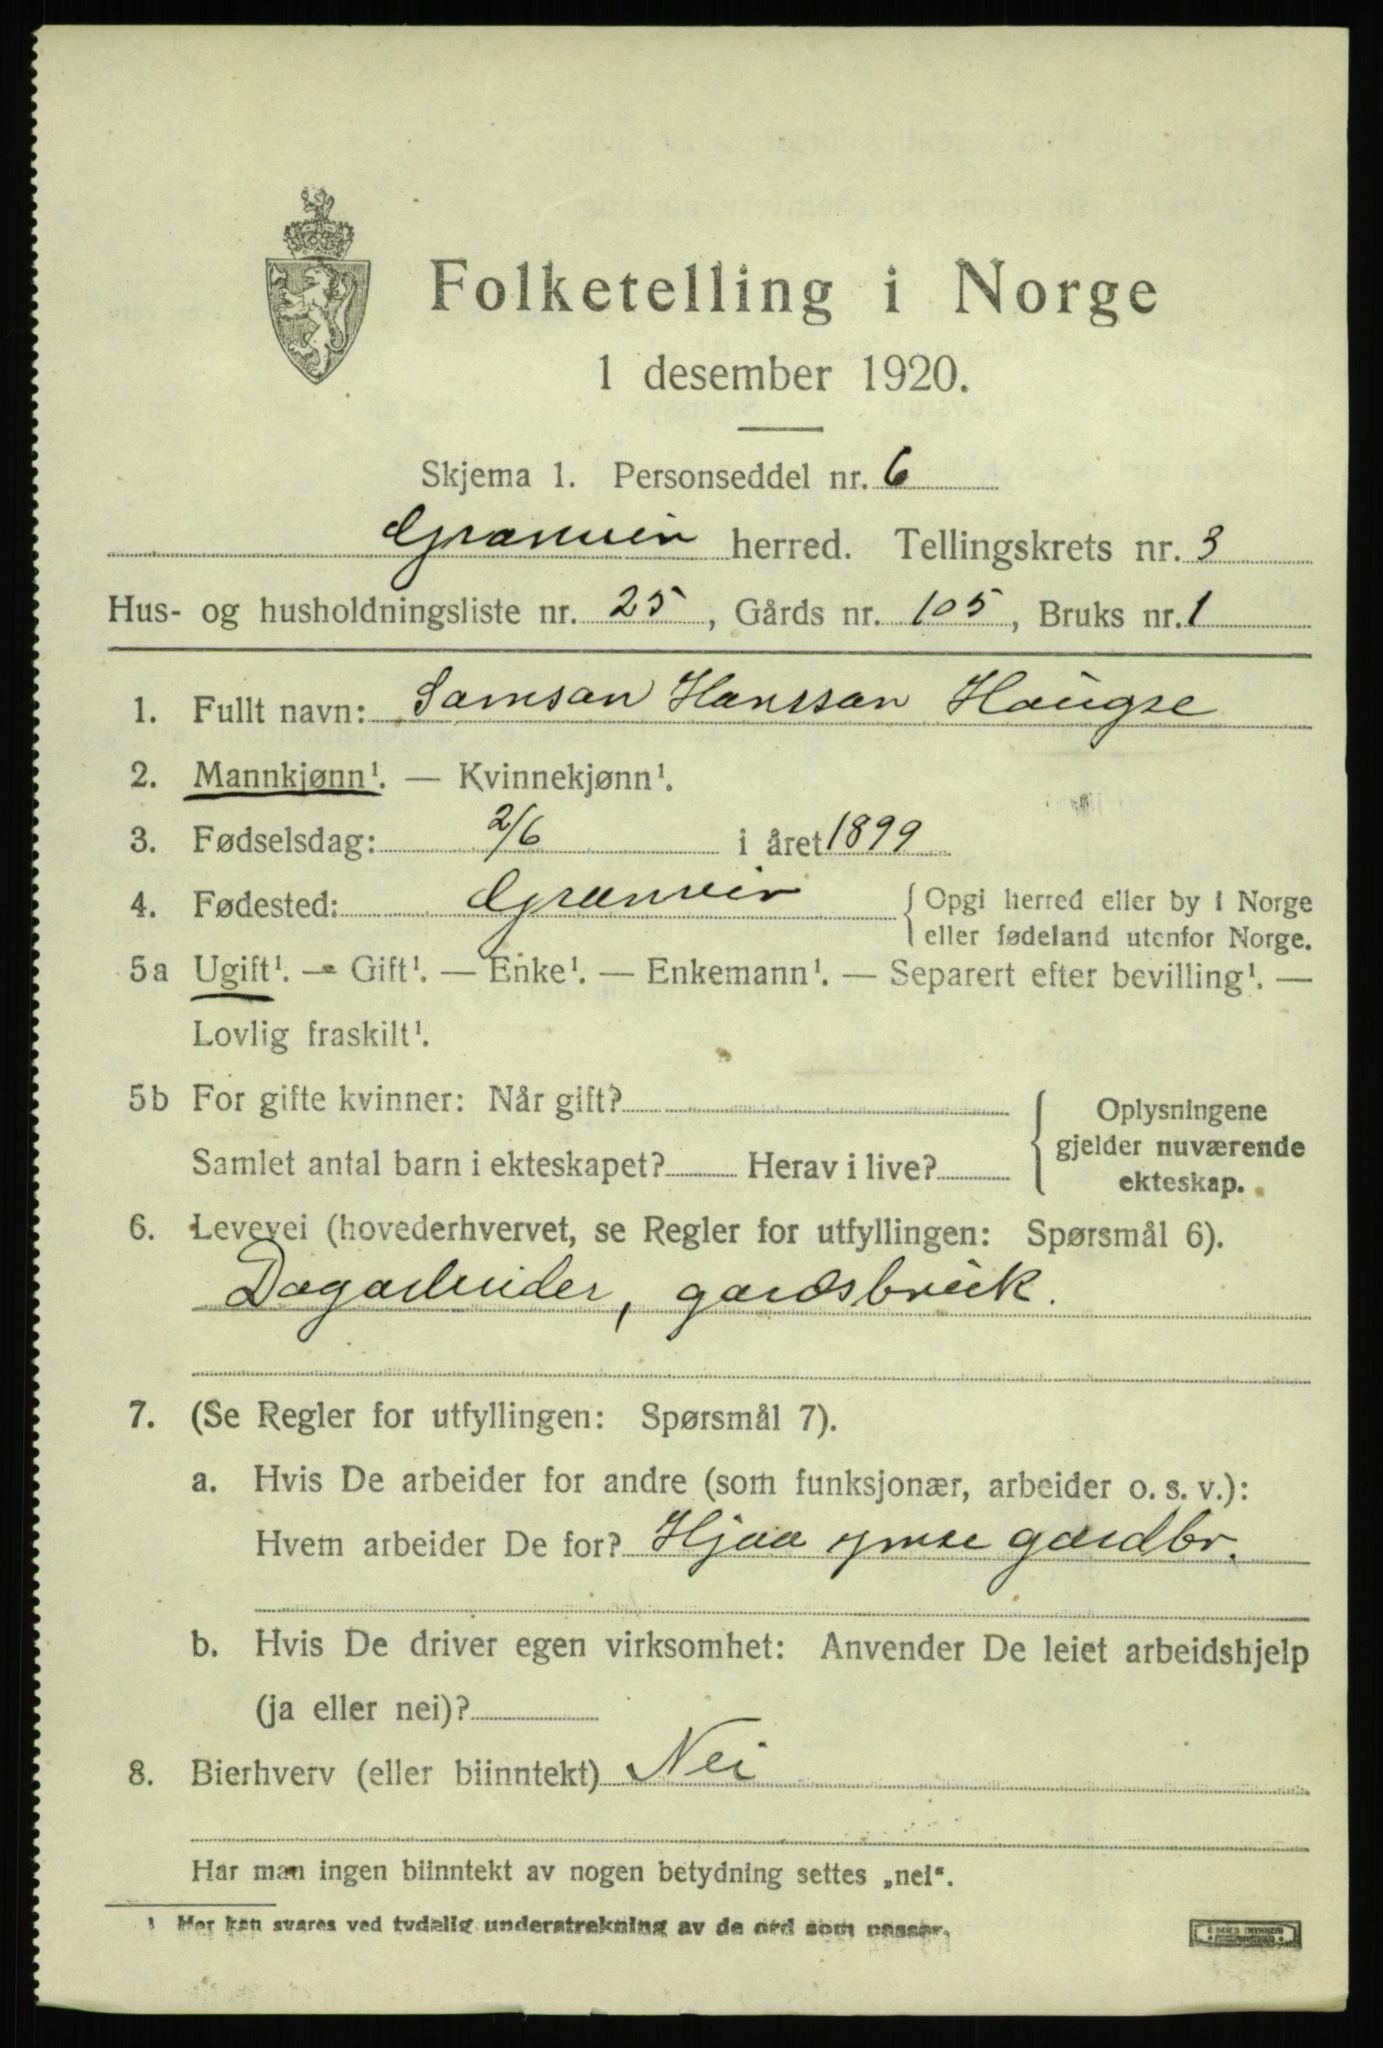 Folketelling i Norge
1 desember 1920.
Skjema 1. Personseddel nr. 6
Granvin herred. Tellingskrets nr. 3
Hus- og husholdningsliste nr. 25, Gårds nr. 105, Bruks nr. 1
1. Fullt navn: Samson Hansson Haugse
2. Mannkjønn¹. — Kvinnekjønn¹.
3. Fødselsdag: 2/6 i året 1899
4. Fødested: Granvin { Opgi herred eller by i Norge
eller fødeland utenfor Norge.
5a Ugift¹. — Gift¹. — Enke¹. — Enkemann¹. — Separert efter bevilling¹. —
Lovlig fraskilt¹.
5b For gifte kvinner: Når gift? { Oplysningene
gjelder nuværende
Samlet antal barn i ekteskapet? Herav i live?
ekteskap.
6. Levevei (hovederhvervet, se Regler for utfyllingen: Spørsmål 6).
Dagarbeider, gardsbruk.
7. (Se Regler for utfyllingen: Spørsmål 7).
a. Hvis De arbeider for andre (som funksjonær, arbeider o. s. v.):
Hvem arbeider De for? Hjaa ymse gardbr.
b. Hvis De driver egen virksomhet: Anvender De leiet arbeidshjelp
(ja eller nei)?
8. Bierhverv (eller biinntekt) Nei
Har man ingen biinntekt av nogen betydning settes „nei“.
¹ Her kan svares ved tydelig understrekning av de ord som passer.